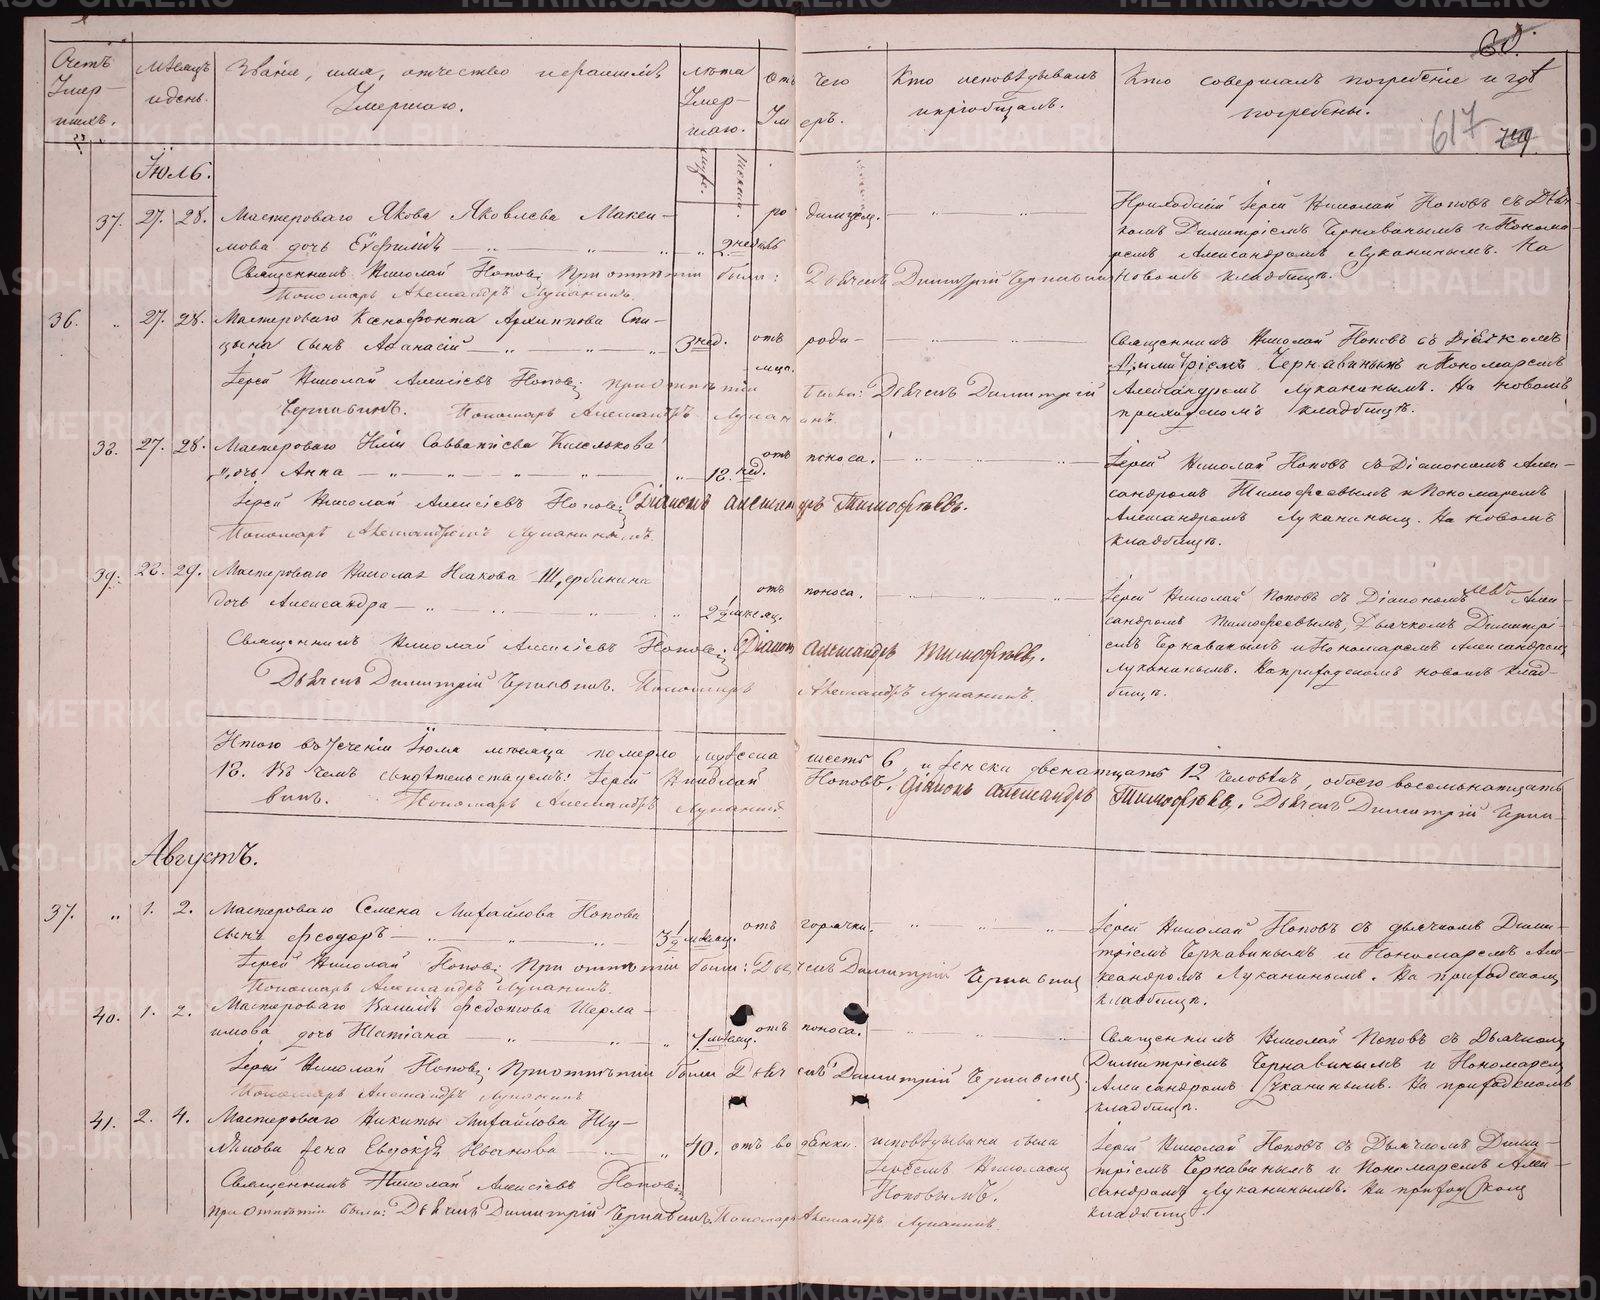 60.
617
Счетъ Умершихъ.
Мѣсяцъ и день.
Званіе, имя, отчество и фамилія Умершаго.
Лѣта Умершаго.
Отъ чего Умеръ.
Кто исповѣдывалъ и пріобщалъ.
Кто совершалъ погребеніе и гдѣ погребены.
Іюль.
37. 27. 28. Мастероваго Якова Яковлева Макси-
мова дочь
2 недѣль
родимца.
Священникъ Николай Поповъ; При отпѣтіи были: Дьячекъ Димитрій Чернавинъ
Пономарь Александръ Луканинъ.
Приходскій Іерей Николай Поповъ съ Дьяч-
комъ Димитріемъ Чернавинымъ и Понома-
ремъ Александромъ Луканинымъ. На
новомъ кладбищѣ.
36. " 27. 28. Мастероваго Ксенофонта Архиппова Спи-
цына сынъ Аѳанасій
3 нед.
отъ роди-
мца.
Іерей Николай Алексіевъ Поповъ; при отпѣтіи были: Дьячекъ Димитрій
Чернавинъ. Пономарь Александръ Луканинъ.
Священникъ Николай Поповъ съ Дьячкомъ
Димитріемъ Чернавинымъ и Пономаремъ
Александромъ Луканинымъ. На новомъ
приходскомъ кладбищѣ.
38. 27. 28. Мастероваго Иліи Савватіева
дочь Анна
12 нед.
отъ поноса.
Іерей Николай Алексіевъ Поповъ; Діаконъ Александръ Тимофѣевъ.
Пономарь Луканинъ.
Іерей Николай Поповъ съ Діакономъ Алек-
сандромъ Тимофеевымъ и Пономаремъ
Александромъ Луканинымъ. На новомъ
кладбищѣ.
39. 28. 29. Мастероваго Николая Исакова Щербинина
дочь Александра
2 1/2 мѣсяц.
отъ поноса.
Священникъ Николай Алексіевъ Поповъ; Діаконъ Александръ Тимофѣевъ.
Дьячекъ Димитрій Чернавинъ. Пономарь Александръ Луканинъ.
Іерей Николай Поповъ съ Діакономъ Алек-
сандромъ Тимофеевымъ, Дьячкомъ Димитрі-
емъ Чернавинымъ и Пономаремъ Александромъ
Луканинымъ. На приходскомъ новомъ клад-
бищѣ.
Итого въ теченіи Іюля мѣсяца померло мужеска шесть 6, и женска двенатцать 12 человѣкъ, обоего восемьнатцать
18. Въ чемъ свидѣтельствуемъ: Іерей Николай Поповъ. Діаконъ Александръ Тимофѣевъ. Дьячекъ Димитрій Черна-
винъ. Пономарь Александръ Луканинъ.
Августъ.
37. " 1. 2. Мастероваго Семена Михайлова Попова
сынъ Феодоръ
3 1/2 мѣсяц.
отъ горячки.
Іерей Николай Поповъ; При отпѣтіи были: Дьячекъ Димитрій Чернавинъ
Пономарь Александръ Луканинъ.
Іерей Николай Поповъ съ дьячкомъ Дими-
тріемъ Чернавинымъ и Пономаремъ Але-
ксандромъ Луканинымъ. На приходскомъ
кладбищѣ.
40. 1. 2. Мастероваго Федотова Шерла-
имова дочь Татіана
1 мѣсяц.
отъ поноса.
Іерей Николай Поповъ; При отпѣтіи были Дьячекъ Димитрій Чернавинъ
Пономарь Александръ Луканинъ
Священникъ Николай Поповъ съ Дьячкомъ
Димитріемъ Чернавинымъ и Пономаремъ
Александромъ Луканинымъ. На приходскомъ
кладбищѣ.
41. 2. 4. Мастероваго Никиты Михайлова
жена Евдокія Иванова
40.
отъ водянки.
исповѣдывана была
Іереемъ Николаемъ
Поповымъ.
Священникъ Николай Алексіевъ Поповъ;
при отпѣтіи были: Дьячекъ Димитрій Чернавинъ. Пономарь Александръ Луканинъ.
Іерей Николай Поповъ съ Дьячкомъ Дими-
тріемъ Чернавинымъ и Пономаремъ Алек-
сандромъ Луканинымъ. На приходскомъ
кладбищѣ.
METRIKI.GASO-URAL.RU